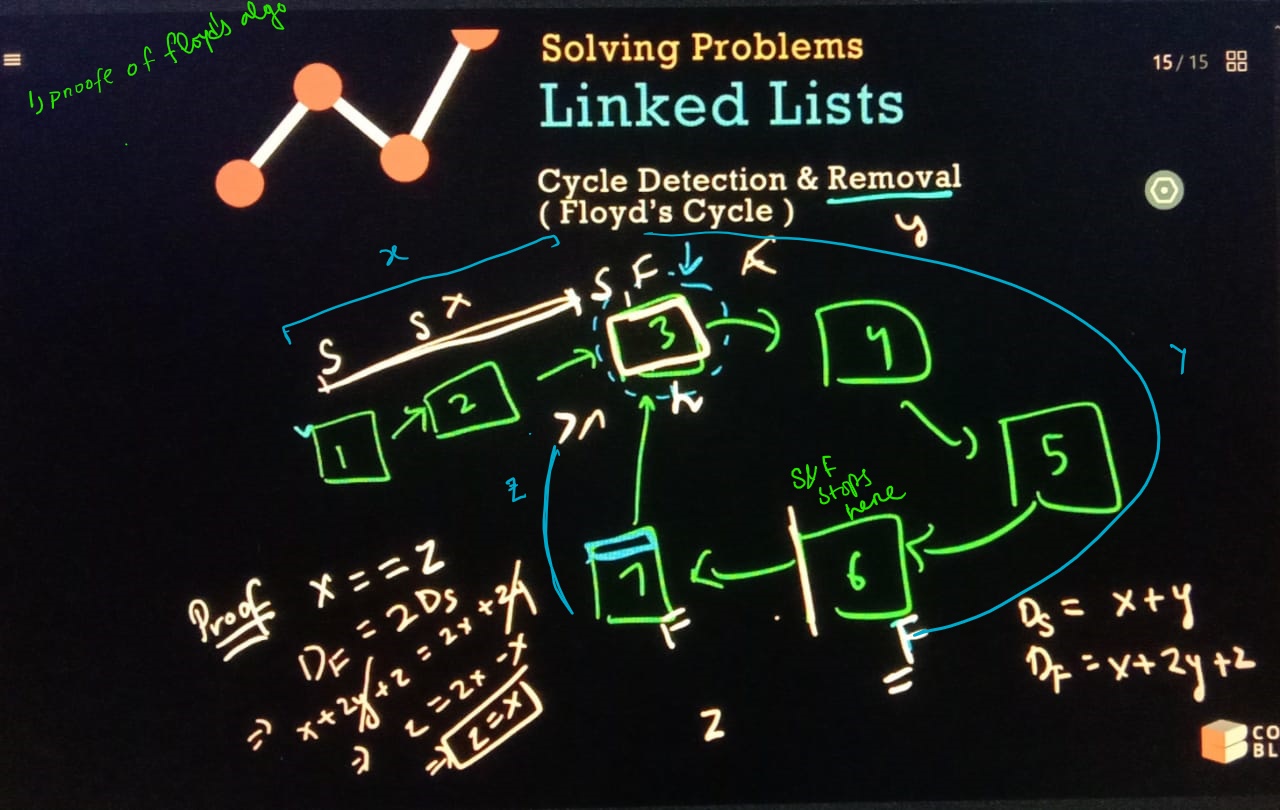 1) proofe of floyd's algo
Solving Problems
15 / 15
Linked Lists
Cycle Detection & Removal
( Floyd's Cycle )
y
x
S x
S, F
S
3
4
y
2
1
5
z
S & F
stops
here
7
6
F
F
Proof x == z
DF = 2Ds
⇒ x + 2y + z = 2x + 2y
⇒ z = 2x - x
⇒ z = x
Ds = x + y
DF = x + 2y + z
z
CO
BL